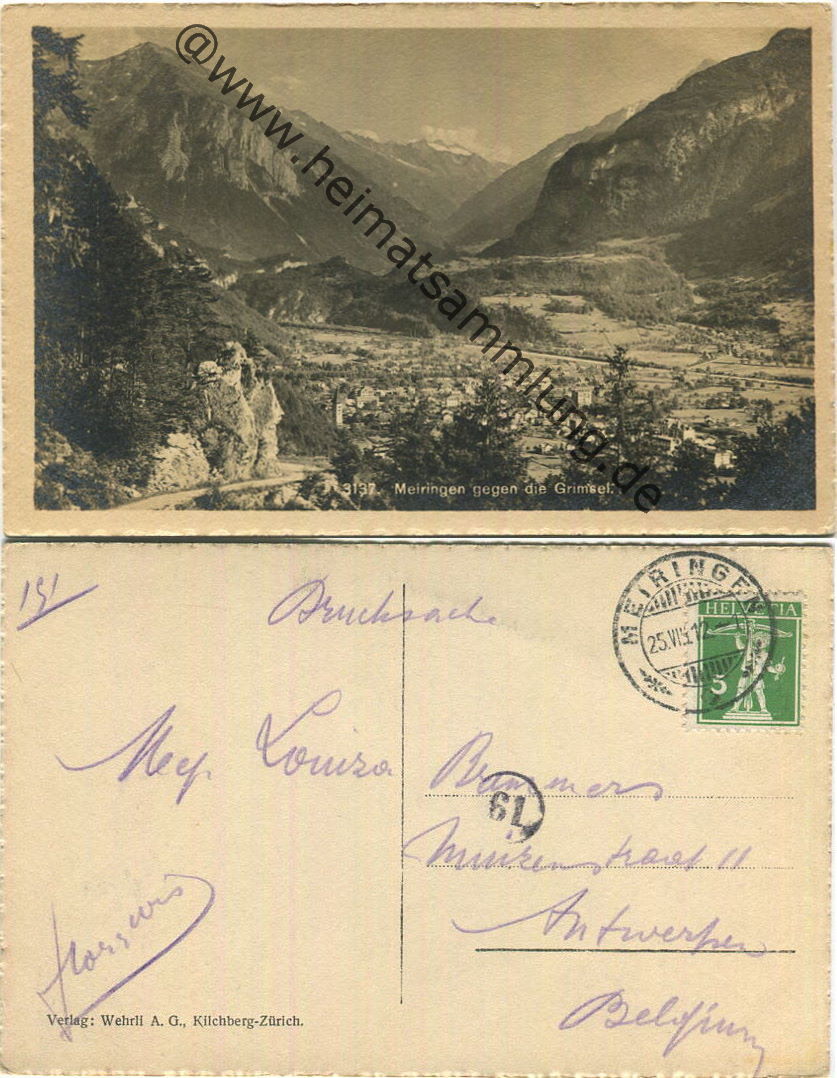 @www.heimatsammlung.de
3137. Meiringen gegen die Grimsel.
191
Drucksache
MEIRINGEN
25.VII.12
HELVETIA
5
Mej. Louiza Brammers
61
Muizenstraat 11
Antwerpen
Belgium
Verlag: Wehrli A. G., Kilchberg-Zürich.